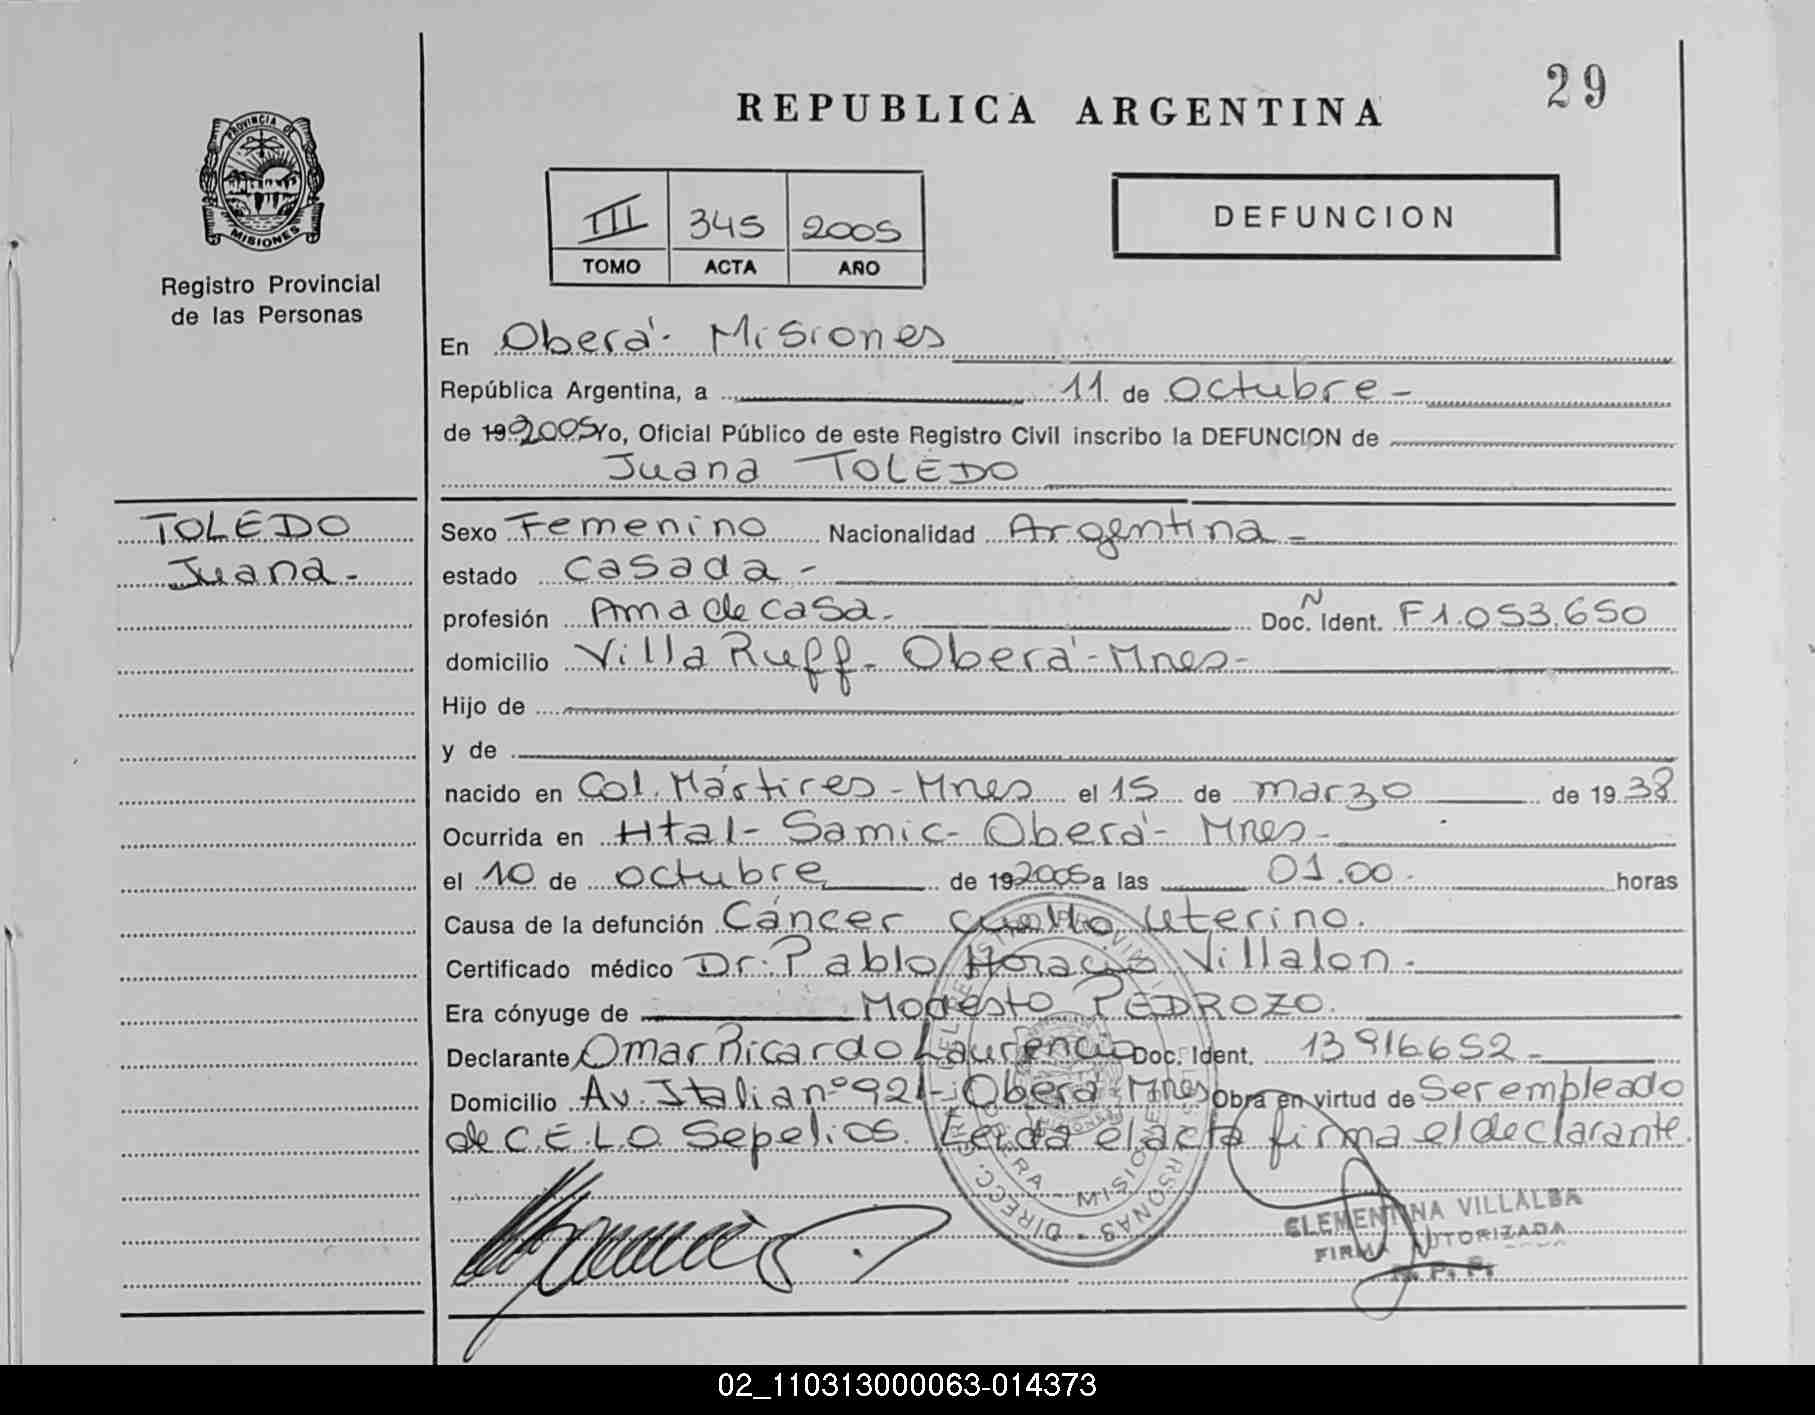 29
REPUBLICA ARGENTINA
PROVINCIA DE
MISIONES
Registro Provincial
de las Personas
III 345 2005
TOMO ACTA AÑO
DEFUNCION
En Oberá - Misiones
República Argentina, a 11 de octubre -
de 19 2005 Yo, Oficial Público de este Registro Civil inscribo la DEFUNCION de
Juana TOLEDO
TOLEDO
Juana -
Sexo Femenino Nacionalidad Argentina -
estado casada -
profesión Ama de casa - Doc. N Ident. F1.053.650
domicilio Villa Ruff - Oberá - Mnes -
Hijo de
y de
nacido en Col. Mártires - Mnes el 15 de marzo de 19 38
Ocurrida en Htal - Samic - Oberá - Mnes -
el 10 de octubre de 19 2005 a las 01.00 - horas
Causa de la defunción Cáncer cuello uterino.
Certificado médico Dr. Pablo Horacio Villalon -
Era cónyuge de Modesto PEDROZO.
Declarante Omar Ricardo Laurencio Doc. Ident. 13916652 -
Domicilio Av. Italia nº 921 - Oberá Mnes Obra en virtud de Ser empleado
de C.E.L.O. Sepelios. Leida el acta firma el declarante.
CLEMENTINA VILLALBA
FIRMA AUTORIZADA
R. P. P.
02_110313000063-014373